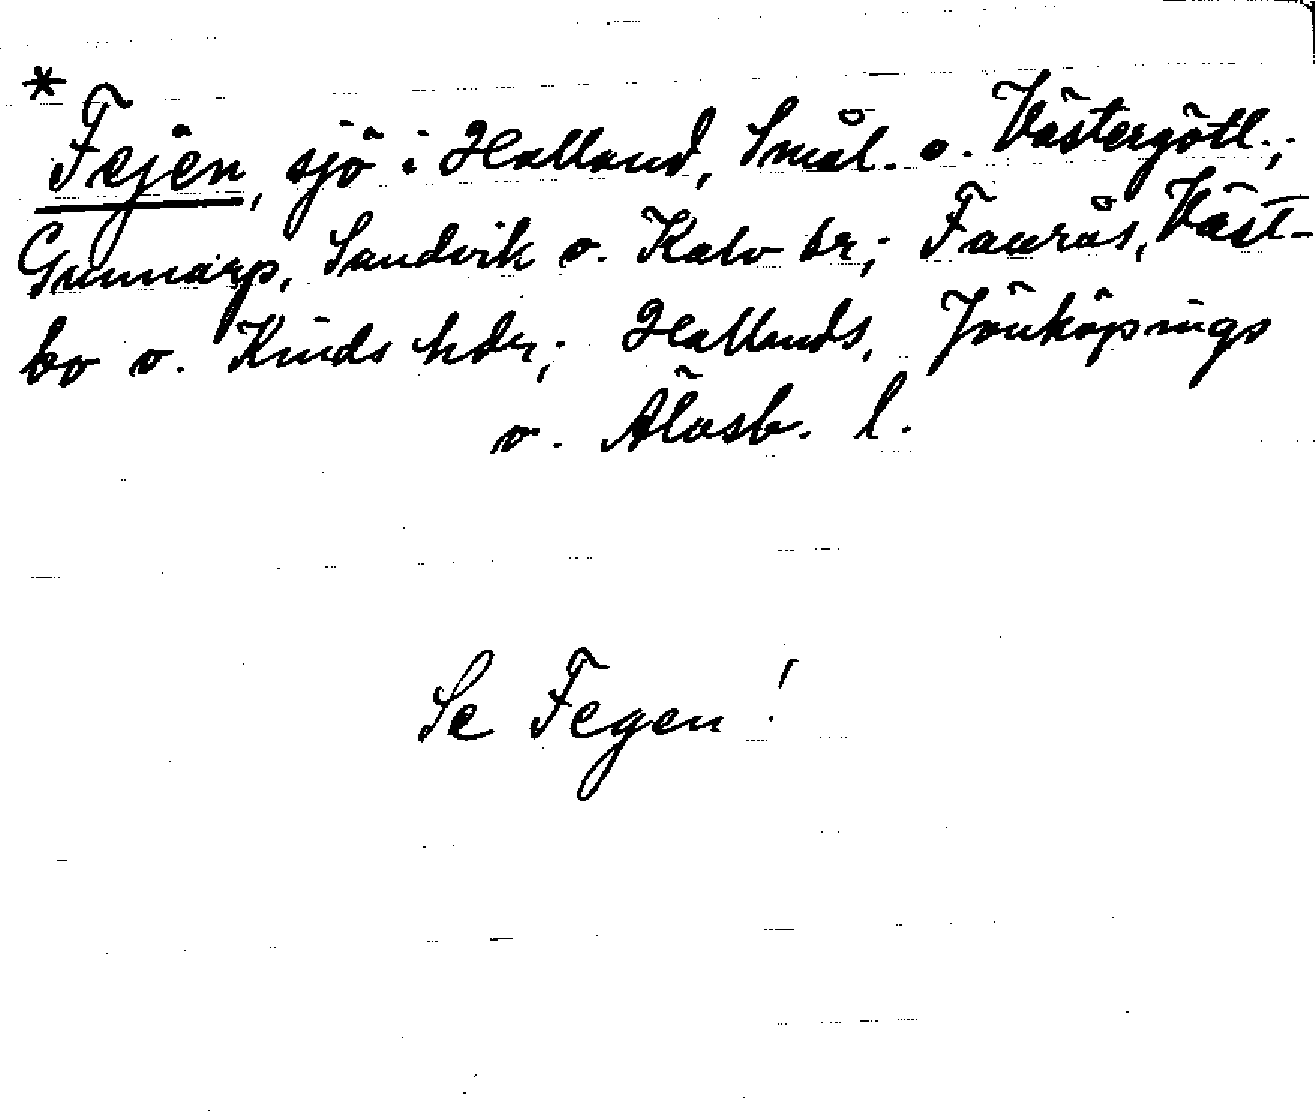 * Fejen, sjö i Halland, Smål. o. Västergötl.;
Gunnarp, Sandvik o. Kalv sr; Faurås, Väst-
bo o. Kinds hdr; Hallands, Jönköpings
o. Älvsb. l.
Se Fegen!